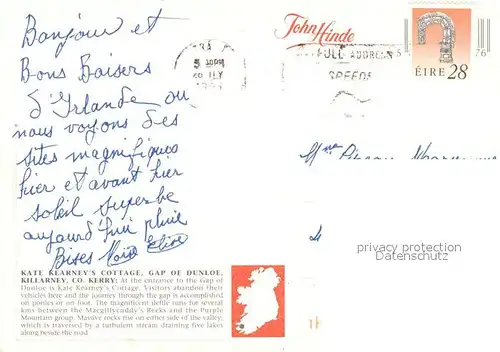 Bonjour et
Bons Baisers
d'Irlande ou
nous voyons des
sites magnifiques
hier et avant hier
soleil superbe
aujourd'hui pluie
Bises
KATE KEARNEY'S COTTAGE, GAP OF DUNLOE,
KILLARNEY, CO. KERRY: At the entrance to the Gap of
Dunloe is Kate Kearney's Cottage. Visitors abandon their
vehicles here and the journey through the gap is accomplished
on ponies or on foot. The magnificent defile runs for several
kms between the Macgillycaddy's Reeks and the Purple
Mountain group. Massive rocks rise on either side of the valley,
which is traversed by a turbulent stream draining five lakes
along beside the road.
John Hinde
FULL ADDRESS
SPEEDS
ÉIRE 28
Mme
privacy protection
Datenschutz